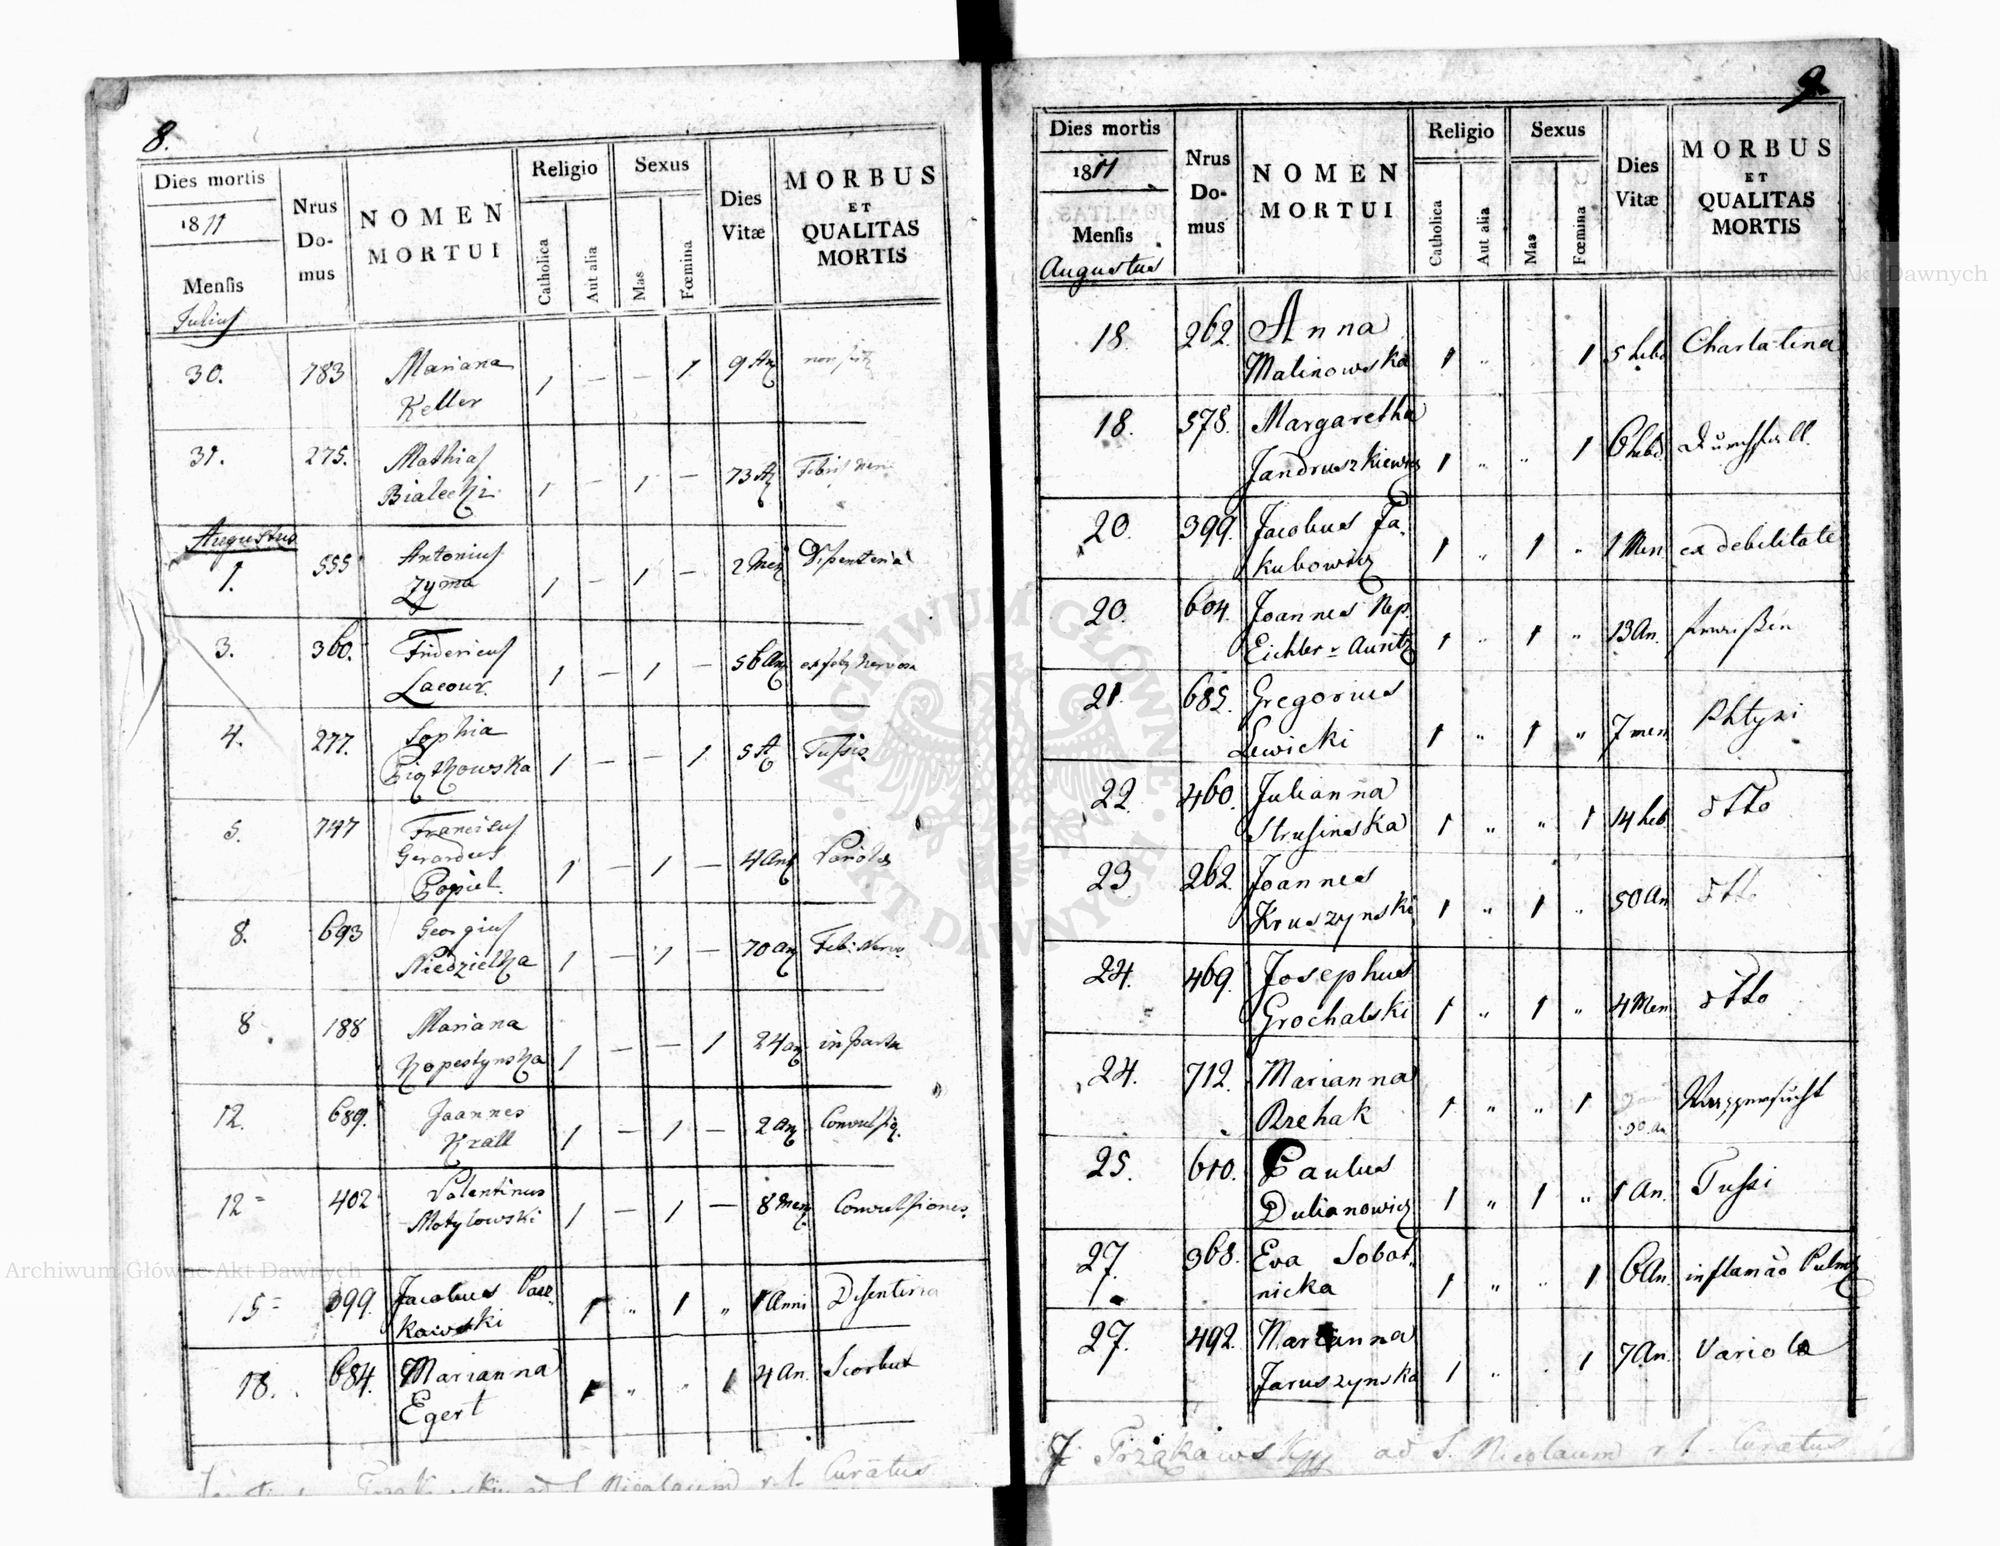 8.
Dies mortis
1811
Mensis
Julius
Nrus
Do-
mus
NOMEN
MORTUI
Religio
Catholica
Aut alia
Sexus
Mas
Fœmina
Dies
Vitæ
MORBUS
ET
QUALITAS
MORTIS
30. 783 Mariana
Keller 1 – – 1 9 An
31. 275. Mathias
Bialecki 1 – 1 – 73 A Febris Ner
Augustus
1. 555 Antonius
Zyma 1 – 1 – 2 Men Disenteria
3. 360. Fridericus
Lacour. 1 – 1 – 56 An ex feb. nervosa
4. 277. Sophia
Piątkowska 1 – – 1 5 A Tussis
5. 747 Franciscus
Gerardus
Popiel. 1 – 1 – 4 An Variola
8. 693 Georgius
Niedzielka 1 – 1 – 70 An Feb: Nervo.
8 188 Mariana
Kopestynska 1 – – 1 24 an in partu
12. 689. Joannes
Krall 1 – 1 – 2 An Convulsio.
12 402 Valentinus
Motylowski 1 – 1 – 8 Men Convulsiones.
15 399. Jacobus
kowski 1 " 1 " 1 Anni Disenteria
18. 684. Marianna
Egert 1 " " 1 4 An. Scorbut
ad S. Nicolaum r. l. Curatus
9.
Dies mortis
1811
Mensis
Augustus
Nrus
Do-
mus
NOMEN
MORTUI
Religio
Catholica
Aut alia
Sexus
Mas
Fœmina
Dies
Vitæ
MORBUS
ET
QUALITAS
MORTIS
18. 262. Anna
Malinowska 1 " 1 5 heb. Charlatina
18. 578. Margaretha
Jandruszkiewicz 1 " " 1 6 hebd. Durchfall.
20. 399. Jacobus Ja-
kubowicz 1 " 1 " 1 Men. ex debilitate
20. 604. Joannes Nep.
Eichler v Auritz 1 " 1 " 13 An.
21. 685. Gregorius
Lewicki 1 " 1 " 7 men Phtysi
22. 460. Julianna
Strusinska 1 " " 1 14 heb. dtto
23 262. Joannes
Kruszynski 1 " 1 " 50 An dtto
24. 469. Josephus
Grochalski 1 " 1 " 4 Men dtto
24. 712. Marianna
Rzehak 1 " " 1 Wassersucht
25. 610. Paulus
Dulianowicz 1 " 1 " 1 An. Tussi
27. 368. Eva Sobot-
nicka 1 " " 1 6 An. inflamão Pulm
27. 492. Marianna
Jaruszynska 1 " . 1 7 An. Variola
J. Trząkawski ad S. Nicolaum r. l. Curatus
Archiwum Główne Akt Dawnych
Archiwum Główne Akt Dawnych
ARCHIWUM GŁÓWNE
· AKT DAWNYCH ·